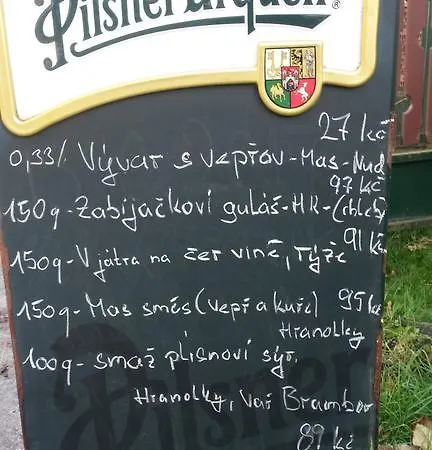 Pilsner Urquell®
27 kč
0,33l. Vývar s vepřov-Mas-Nud
97 kč
150g-Zabijačkoví guláš-HK-(chleb)
91 kč
150g-V játra na čer víně, rýže
150g-Mas směs(vepř a kuře) 95kč
Hranolky
100g-smaž plísnoví sýr,
Hranolky, Vař Brambor
89 kč
Pilsner